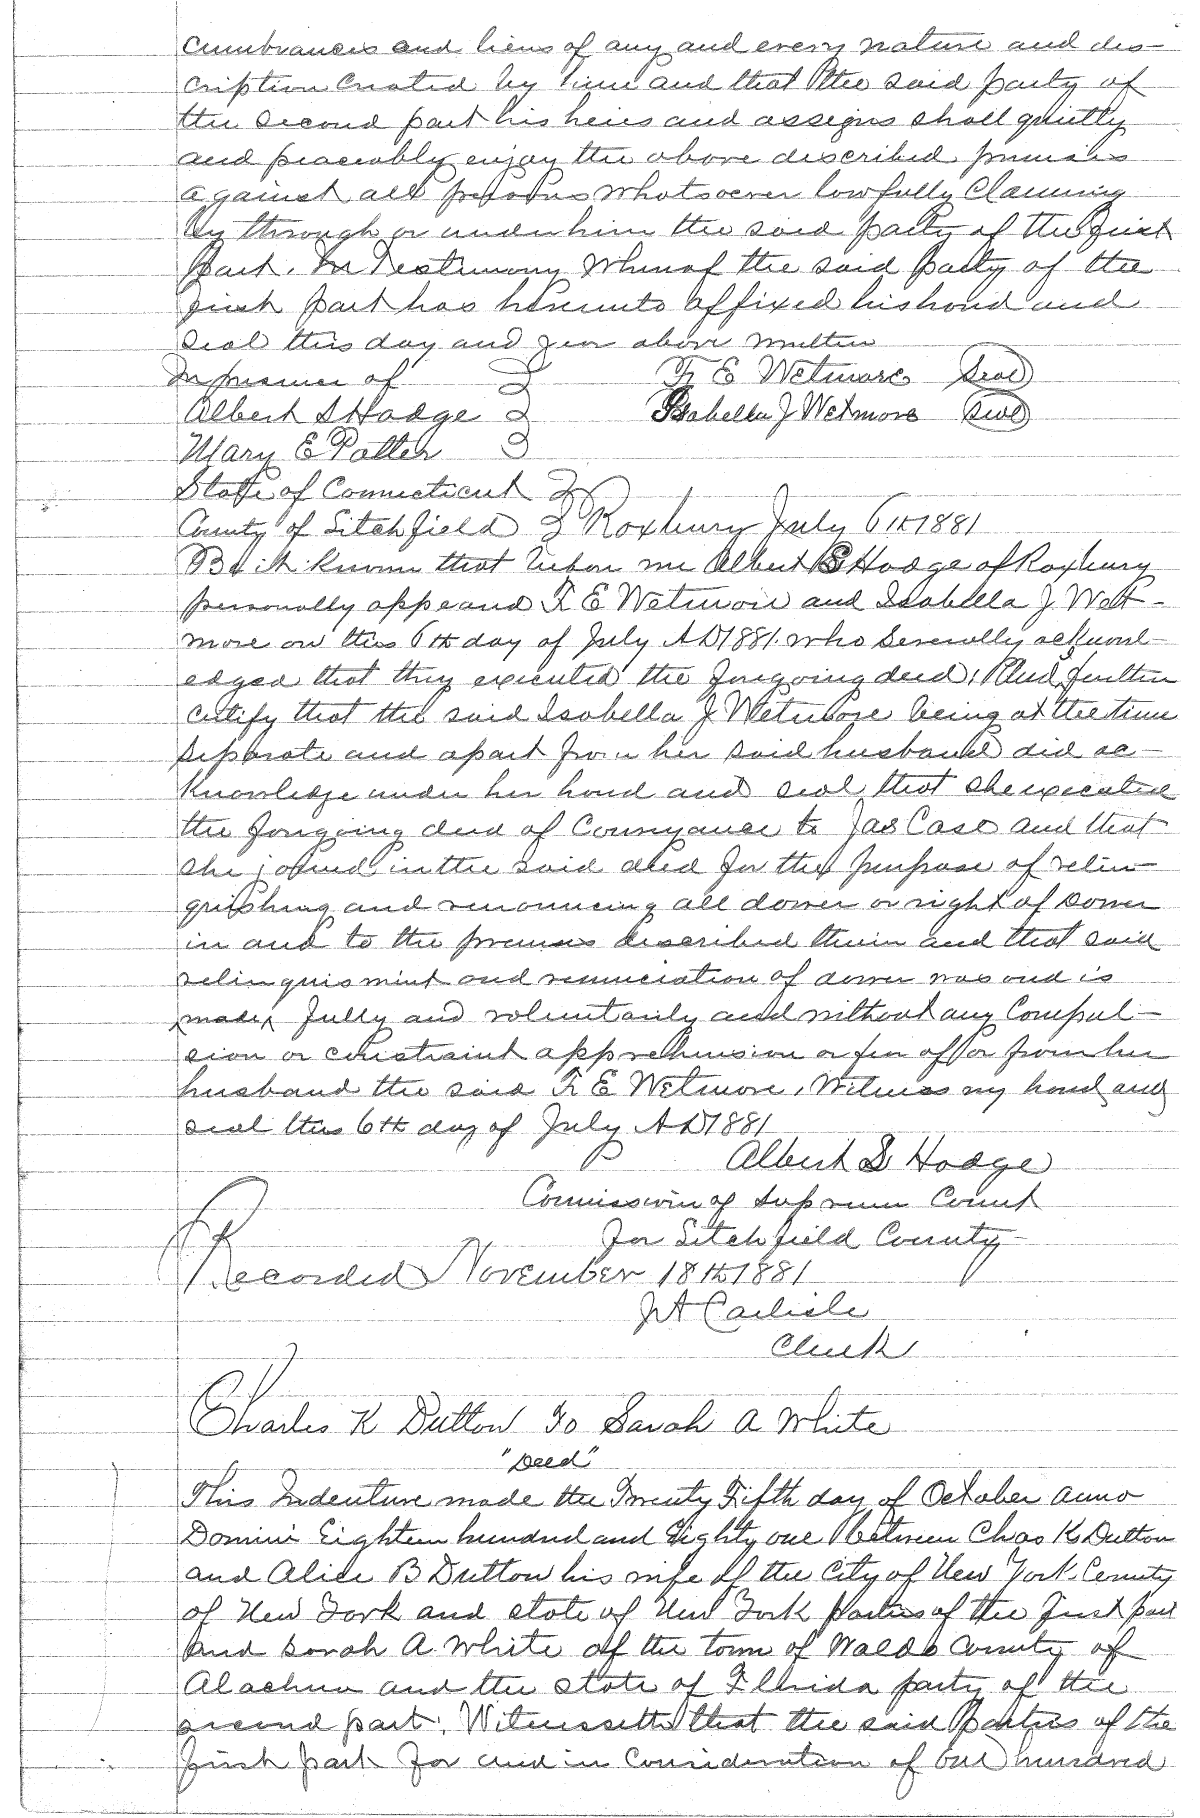 cumbrances and liens of any and every nature and des-
cription created by him and that the said party of
the second part his heirs and assigns shall quietly
and peaceably enjoy the above described premises
against all persons whatsoever lawfully Claiming
by through or under him the said party of the first
part. In Testimony Whereof the said party of the
first part has hereunto affixed his hand and
seal this day and year above written
In presence of F E Wetmore Seal
Albert S Hodge Isabella J Wetmore Seal
Mary E Patter
State of Connecticut
County of Litchfield Roxbury July 6th 1881
Be it known that before me Albert S Hodge of Roxbury
personally appeared F E Wetmore and Isabella J Wet-
more on this 6th day of July A D 1881 who severally acknowl-
edged that they executed the foregoing deed, And further
certify that the said Isabella J Wetmore being at the time
separate and apart from her said husband did ac-
knowledge under her hand and seal that she executed
the foregoing deed of Conveyance to Jas Case and that
she joined in the said deed for the purpose of relin-
quishing and renouncing all dower or right of Dower
in and to the premises described therein and that said
relinquisment and renunciation of dower was and is
made fully and voluntarily and without any Compul-
sion or constraint apprehension or fear of or from her
husband the said F E Wetmore, Witness my hand and
seal this 6th day of July A D 1881
Albert S Hodge
Commission of Supreme Court
for Litchfield County
Recorded November 18th 1881
J A Carlisle
Clerk
Charles K Dutton To Sarah A White
"Deed"
This Indenture made the Twenty Fifth day of October anno
Domini Eighteen hundred and Eighty one between Chas K Dutton
and Alice B Dutton his wife of the City of New York County
of New York and state of New York parties of the first part
and Sarah A White of the town of Waldo County of
Alachua and the state of Florida party of the
second part. Witnesseth that the said parties of the
first part for and in Consideration of one hundred